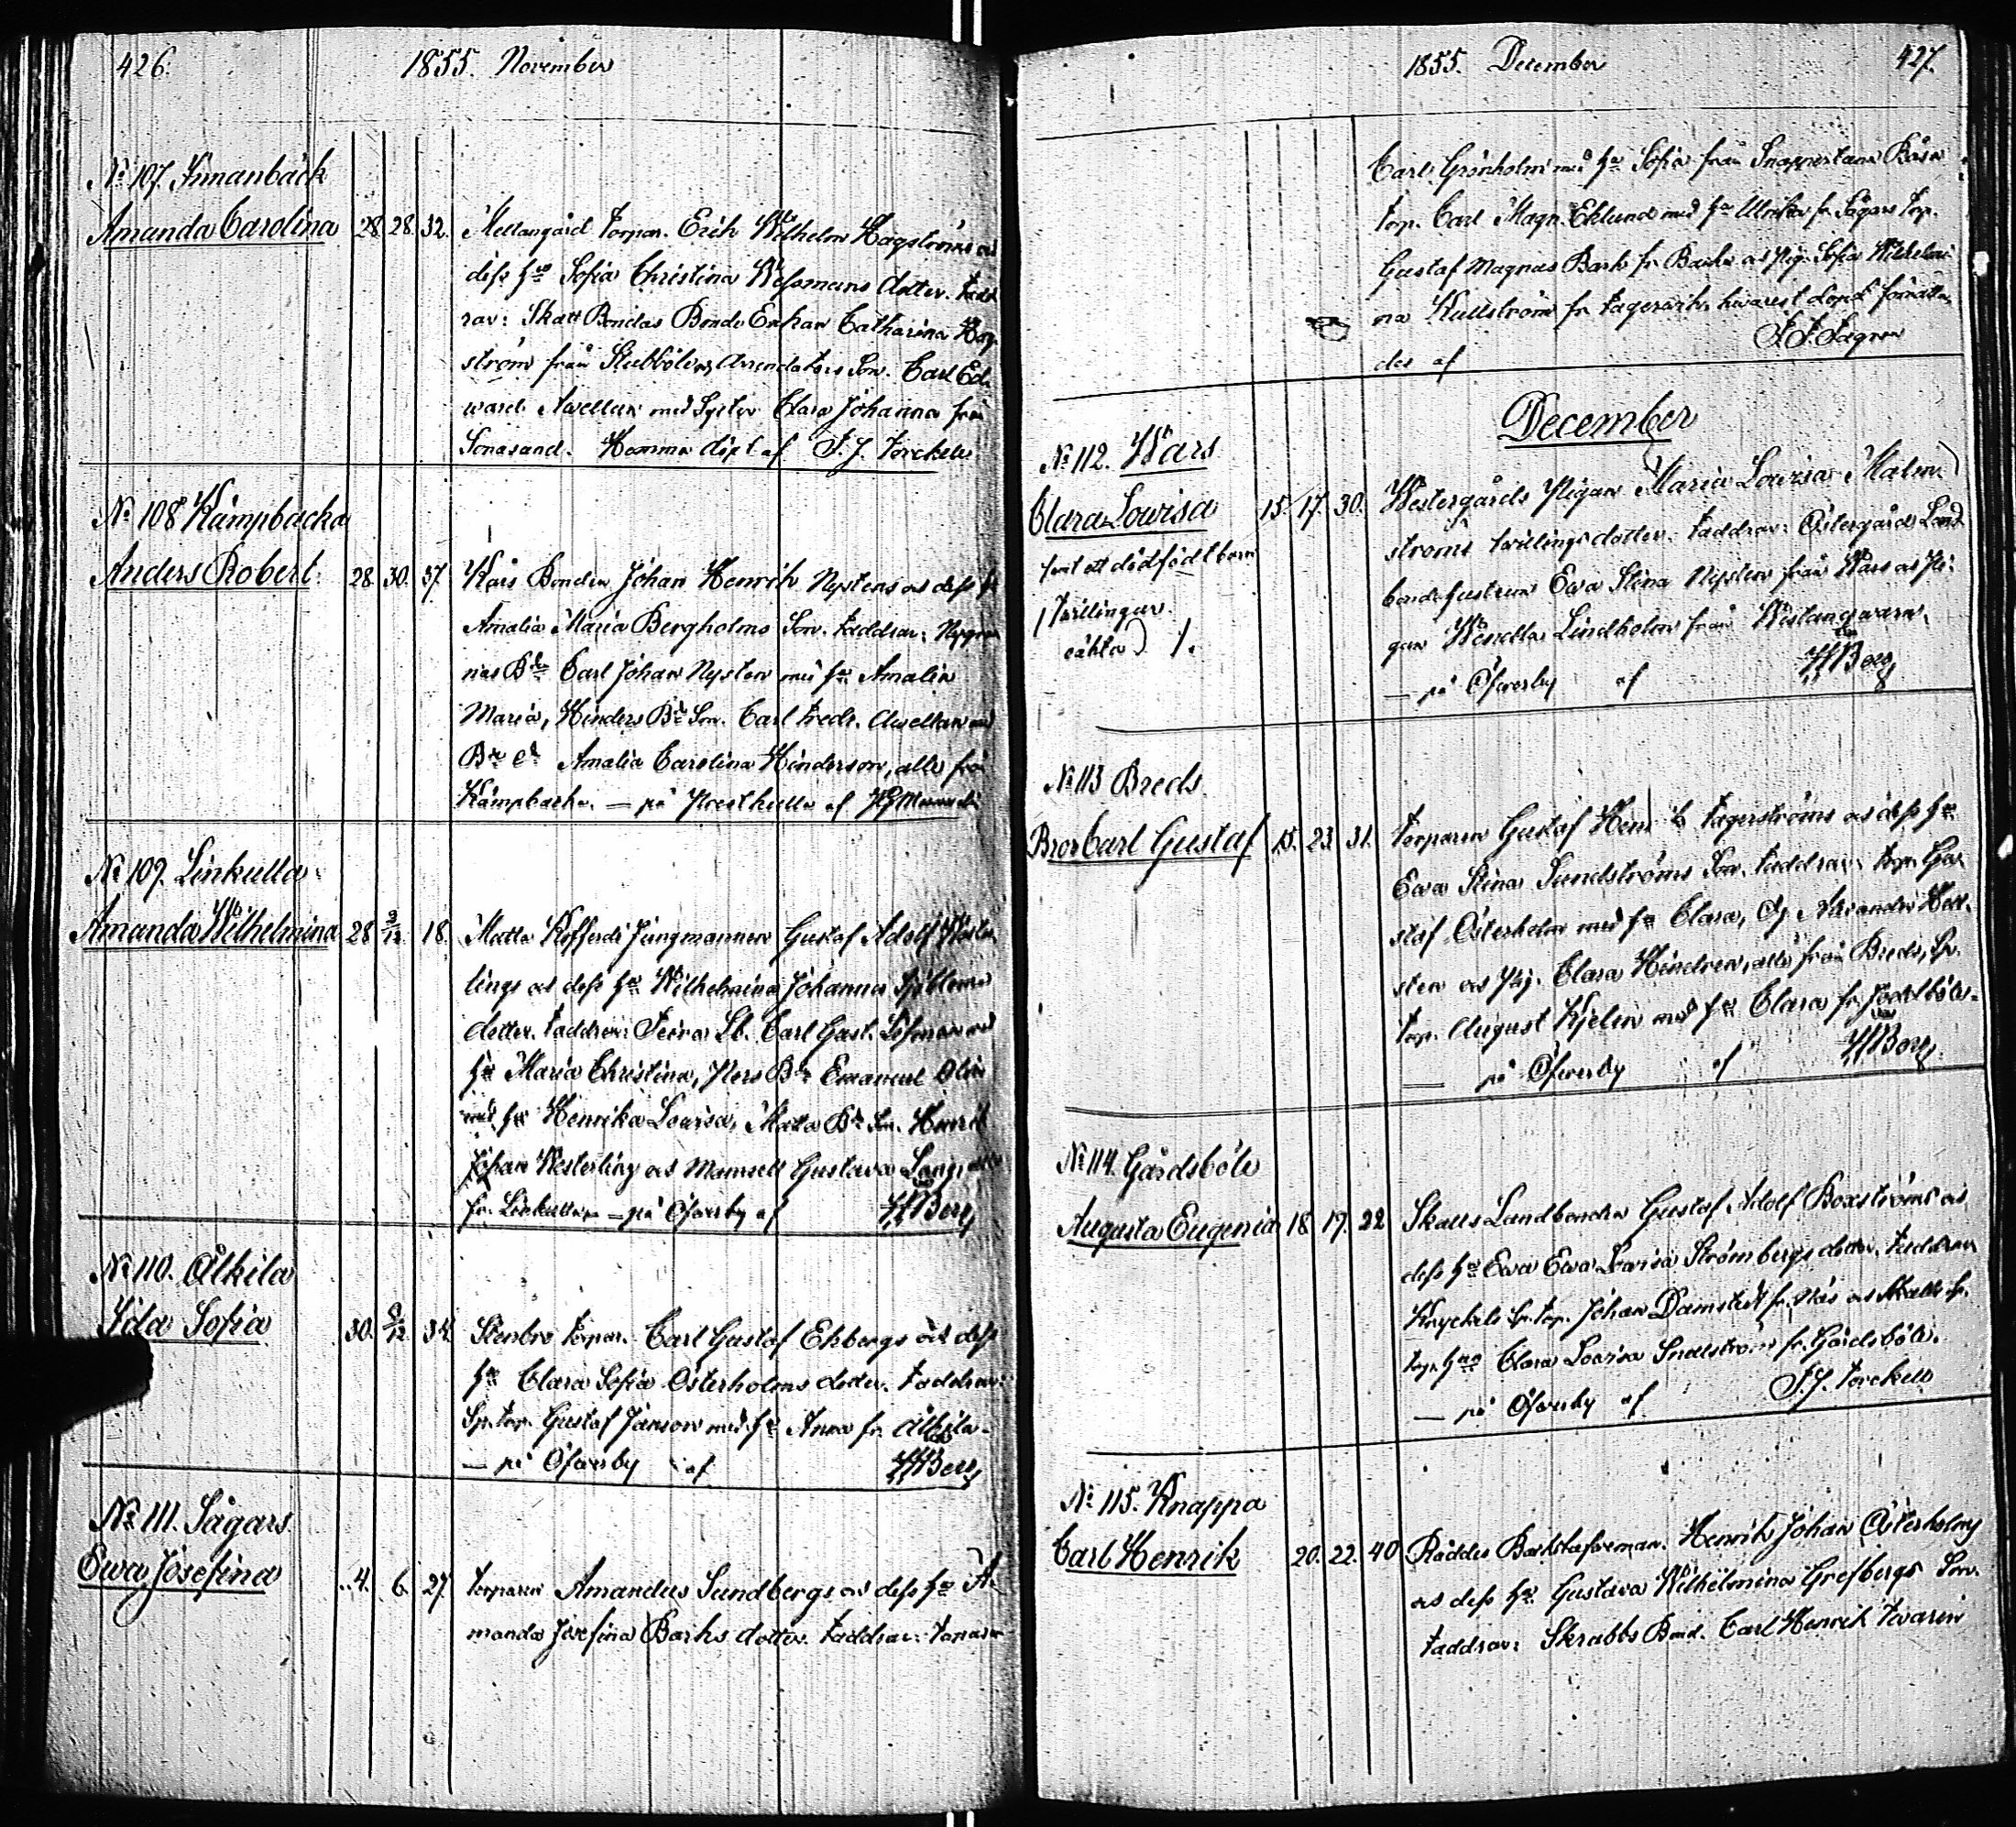 426.
1855. November
№ 107. Finnanbäck
Amanda Carolina 28. 28. 32. Mellangård Torpar. Erik Wilhelm Hagströms oc
dess h:o Sofia Christina Wessmans dotter. Fadd
rar: Skatt Bondas Bonde Enkan Catharina Hag
ström från Arrendators Son. Carl Ed
ward Awellan med Syster Clara Johanna från
Sonasand. Hemma döpt af F. J. Forckell
№ 108 Kämpbacka
Anders Robert. 28. 30. 37. Kårs Bonden Johan Henrik Nystens oc dess h:o
Amalia Maria Bergholms Son. Faddrar: Nygren
nas B:de Carl Johan Nysten med h:o Amalia
Maria, Hinders B:de Son. Carl Fredr. Awellan med
B:de d:r Amalia Carolina Hinderson, alla från
Kämpbacka. — på Prestkulla af
№ 109. Linkulla
Amanda Wilhelmina 28 2/12. 18. Matts Kofferdi Jungmannen Gustaf Adolf Wester
lings oc dess h:o Wilhelmina Johanna Sjöbloms
dotter. Faddrar: Lb. Carl Gust. Löfman med
h:o Maria Christina, Pers B:de Emanuel Olin
med h:o Henrika Lovisa, Matts B:de Son. Henrik
Johan Westerling oc Mamsell Gustava Lang, alla
fr. Linkulla, — på Öfverby af Berg
№ 110. Ålkila
Ida Sofia 30. 2/12. 34. Stenbro Torpar. Carl Gustaf Ekbergs och dess
h:o Clara Sofia Österholms dotter. Faddrar:
Sp. torp. Gustaf Janson med h:o Anna fr. Ålkila.
— på Öfverby af Berg
№ 111. Sågars
Ewa Josefina 4. 6. 27. Torparen Amandus Sundbergs oc dess h:o A.
manda Josefina Barks dotter. Faddrar: Torparen
1855. December
427.
Carl Grönholm med h:o Sofia från Snappertuna
Torp. Carl Magn. Eklund med h:o Ulrika fr. Sågars Torp.
Gustaf Magnus Bark fr. Backa oc Pig. Sofia Wilhelmi
na Kullström fr. Fagervik, hwarest dopet förrätta
des af F. F. Fagren
December
№ 112. Wars
Clara Lovisa 15. 17. 30. Westergårds Pigan Maria Lovisa Malm
ströms twillingsdotter. Faddrar: Östergårds Land
samt ett dödfödt barn
bonde hustrun Ewa Stina Nysten från Wårs oc Pi:
/ Twillingar.
gan Lindholm från Westanqwarn.
oäkta ) /.
— på Öfwerby af Berg
№ 113 Breds.
Bror Carl Gustaf 15. 23. 31. Torparen Gustaf Henr. Fagerströms oc dess h:o
Ewa Stina Sundströms Son. Faddrar: Torp. Gu
staf Österholm med h:o Clara, Dr. Alexander Hell
sten oc Pig. Clara Hindren, alla från Breds, Sp.
torp. August Kjelin med h:o Clara fr.
— på Öfwerby af Berg.
№ 114. Gårdsböle
Augusta Eugenia 18. 19. 22 Skatts Landbonden Gustaf Adolf Boxströms oc
dess h:o Ewa Ewa Lovisa Strömbergs dotter, Faddrar
Knyckels Sp. torp. Johan Damstedt fr. Näs oc Skatts Sp.
torp. h:o Clara Lovisa fr. Gårdsböle.
— på Öfwerby af F. J. Forckell
№ 115. Knappa
Carl Henrik 20. 22. 40 Räddes Backstufveman. Henrik Johan Österholms
oc dess h:o Gustava Wilhelmina Grefbergs Son.
Faddrar: Skrabbs Bond. Carl Henrik Iwarin